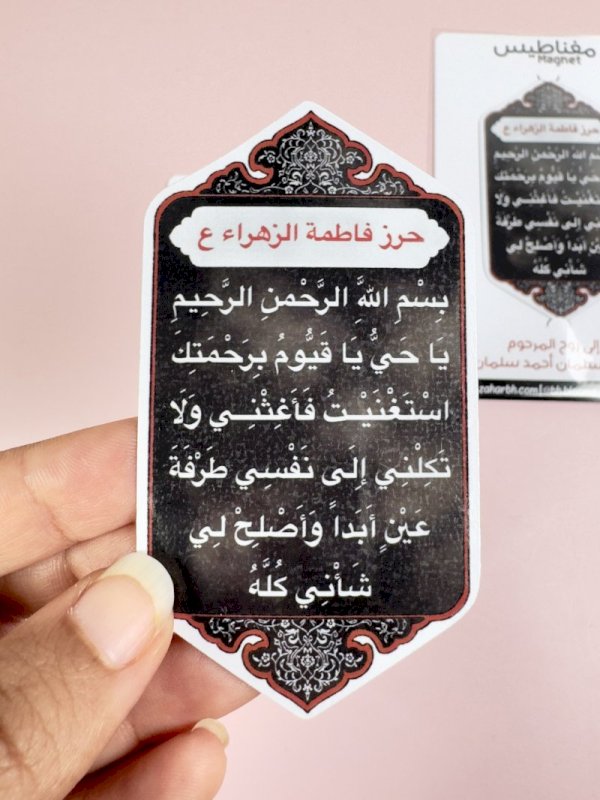 حرز فاطمة الزهراء ع
بِسْمِ اللَّهِ الرَّحْمنِ الرَّحِيمِ
يَا حَيُّ يَا قَيُّومُ بِرَحْمَتِكَ
اسْتَغْنَيْتُ فَأَغِثْنِي وَلَا
تَكِلْنِي إِلَى نَفْسِي طَرْفَةَ
عَيْنٍ أَبَداً وَأَصْلِحْ لِي
شَأْنِي كُلَّهُ
مغناطيس
Magnet
حرز فاطمة الزهراء ع
الله الرحمن الرحيم
يا قيوم برحمتك
فأغثني ولا
إلى نفسي طرفة
عين أبدا وأصلح لي
شأني كله
إلى روح المرحوم
سلمان أحمد سلمان